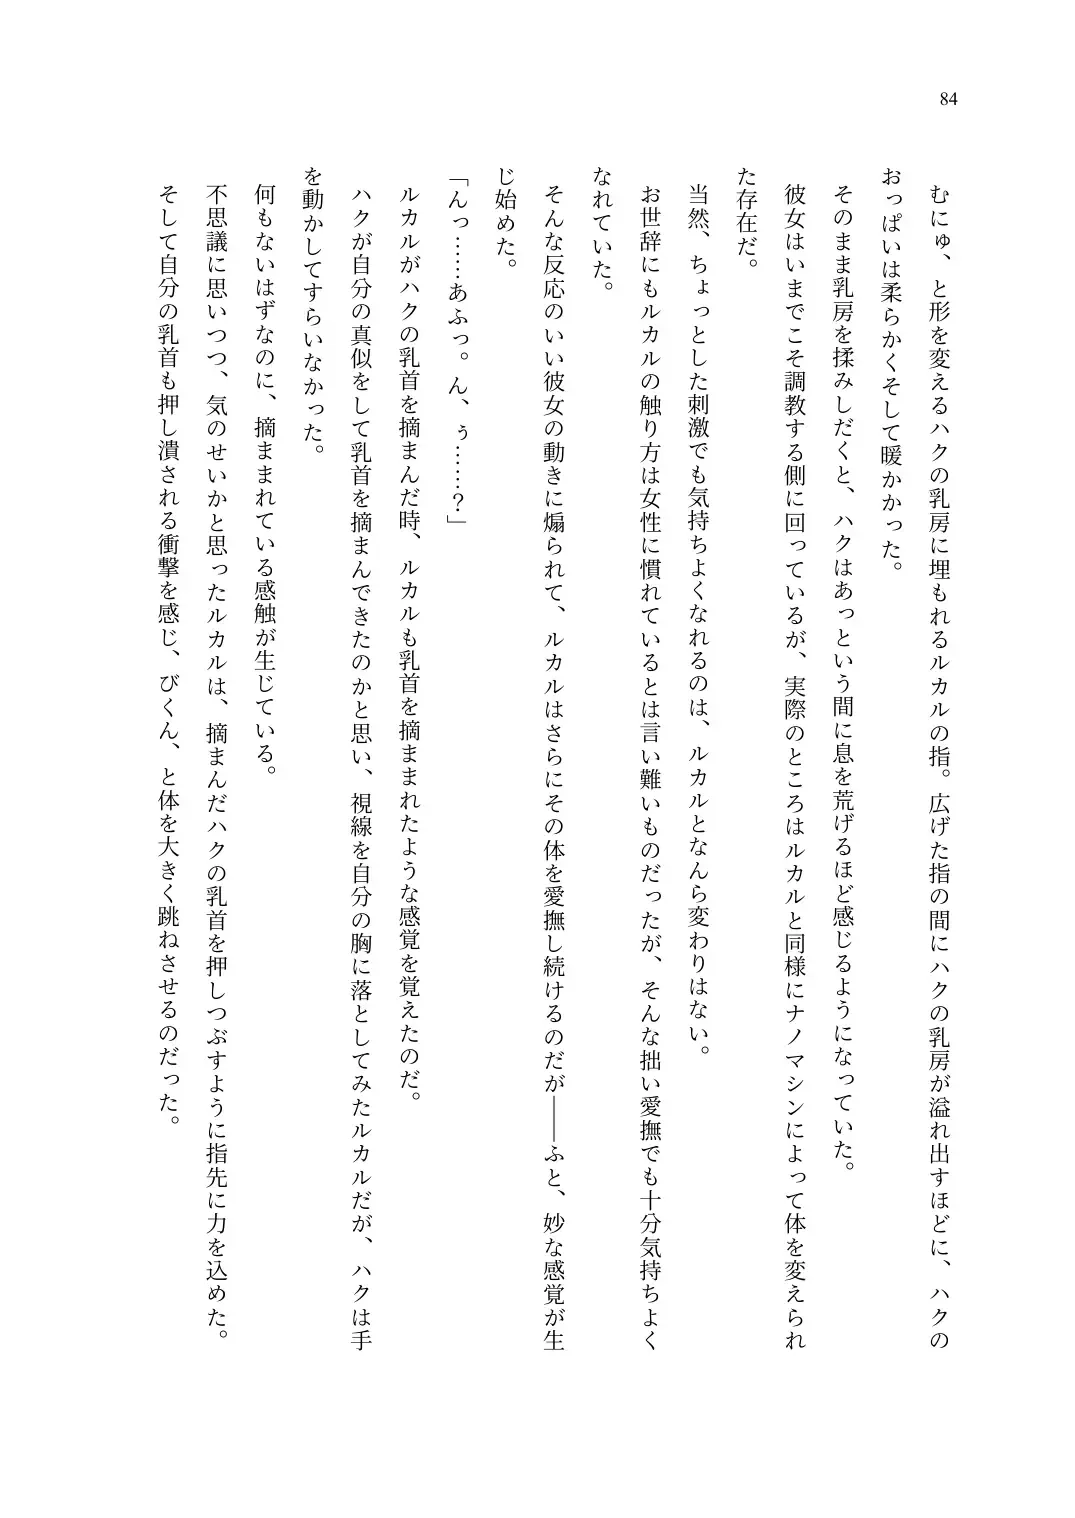 84
　むにゅ、と形を変えるハクの乳房に埋もれるルカルの指。広げた指の間にハクの乳房が溢れ出すほどに、ハクの
おっぱいは柔らかくそして暖かかった。
　そのまま乳房を揉みしだくと、ハクはあっという間に息を荒げるほど感じるようになっていた。
　彼女はいまでこそ調教する側に回っているが、実際のところはルカルと同様にナノマシンによって体を変えられ
た存在だ。
　当然、ちょっとした刺激でも気持ちよくなれるのは、ルカルとなんら変わりはない。
　お世辞にもルカルの触り方は女性に慣れているとは言い難いものだったが、そんな拙い愛撫でも十分気持ちよく
なれていた。
　そんな反応のいい彼女の動きに煽られて、ルカルはさらにその体を愛撫し続けるのだが――ふと、妙な感覚が生
じ始めた。
「んっ……あふっ。ん、ぅ……？」
　ルカルがハクの乳首を摘まんだ時、ルカルも乳首を摘ままれたような感覚を覚えたのだ。
　ハクが自分の真似をして乳首を摘まんできたのかと思い、視線を自分の胸に落としてみたルカルだが、ハクは手
を動かしてすらいなかった。
　何もないはずなのに、摘ままれている感触が生じている。
　不思議に思いつつ、気のせいかと思ったルカルは、摘まんだハクの乳首を押しつぶすように指先に力を込めた。
　そして自分の乳首も押し潰される衝撃を感じ、びくん、と体を大きく跳ねさせるのだった。